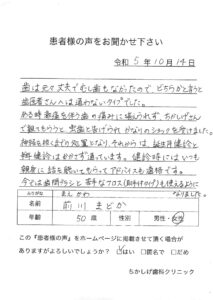 患者様の声をお聞かせ下さい
令和 5 年 10 月 14 日
歯は元々丈夫でむし歯もなかったので、どちらかと言うと
歯医者さんへは通わないタイプでした。
ある時着座を伴う歯の痛みに堪えられず、ちかしげさん
で観てもらうと、虫歯と告げられ かなりのショックを受けました。
神経を抜くまでの処置となり、それからは、誕生月健診と
半年健診はかかさず通っています。健診時にはいつも
親身に話を聴いてもらってアドバイスも適格です。
今では歯間ブラシと苦手なフロス(取手付タイプ)も使えるように
なりました。
ふりがな
まえかわ まどか
名前
前川 まどか
年齢 50 歳 性別 男性・女性
この『患者様の声』をホームページに掲載させて頂く場合が
ありますがよろしいでしょうか? ☑はい □匿名で □だめ
ちかしげ歯科クリニック